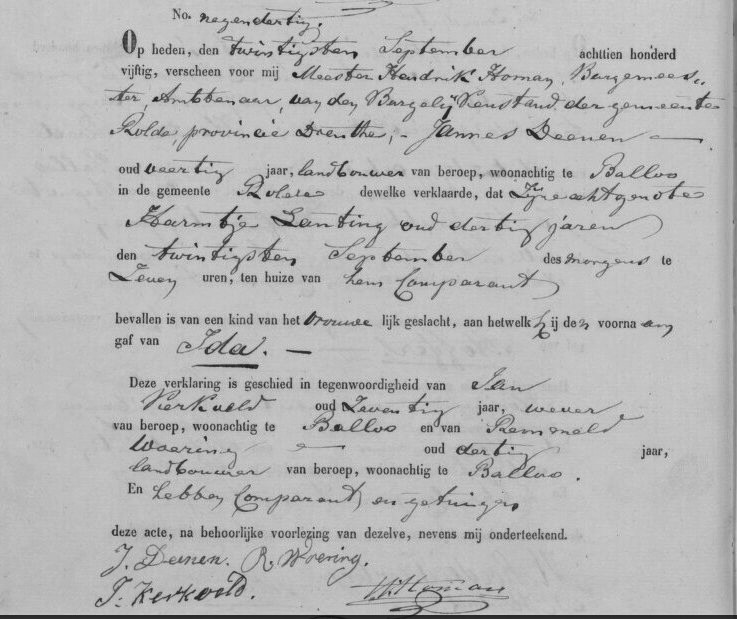 No. negendertig.
Op heden, den twintigsten September achttien honderd
vijftig, verscheen voor mij Meester Hendrik Homan, Burgemees„
ter, Ambtenaar, van den Burgelijk Senstand der gemeente
Rolde, provincie Drenthe, - Jannes Deenen —
oud veertig jaar, landbouwer van beroep, woonachtig te Balloo
in de gemeente Rolde dewelke verklaarde, dat Zijne echtgenote
Harmtje Lanting oud dertig jaren
den twintigsten September des morgens te
Zeven uren, ten huize van hem Comparant
bevallen is van een kind van het vrouwe lijk geslacht, aan hetwelk hij den voorna am
gaf van Ida. —
Deze verklaring is geschied in tegenwoordigheid van Jan
Kerkveld oud Zeventig jaar, wever
van beroep, woonachtig te Balloo en van Remmelt
Waaring — oud dertig jaar,
landbouwer van beroep, woonachtig te Balloo.
En hebben Comparant en getuigen
deze acte, na behoorlijke voorlezing van dezelve, nevens mij onderteekend.
J. Deenen. R. Wrering.
J. Kerkveld. H. Homan